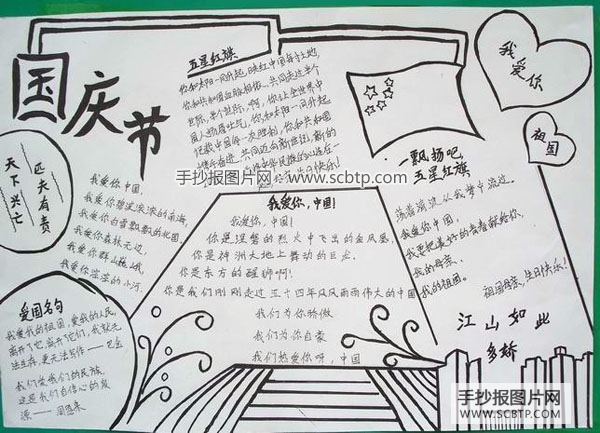 国庆节
五星红旗
你和太阳一同升起,映红中国每寸土地
你和共和国血脉相依,共同走过半个
世际,半个世际,啊,你让全世界中
国人扬眉吐气,你和太阳一同升起
记载中国每一次胜利,你和共和国
快乐!
我爱你
祖国
天下兴亡
匹夫有责
我爱你中国,
我爱你碧波滚滚的南海,
我爱你白雪飘飘的北国,
我爱你森林无边,
我爱你群山巍峨,
我爱你淙淙的小河.
手抄报图片网 www.scbtp.com
一飘扬吧
五星红旗
荡着清波从我梦中流过.
我爱你中国,
我要把美好的青春献给你,
我的母亲、
我的祖国。
祖国母亲,生日快乐!
江山如此
多娇
我爱你,中国!
我爱你,中国!
你是涅槃的烈火中飞出的金凤凰,
你是神洲大地上舞动的巨龙.
你是东方的醒狮啊!
你是我们刚刚走过五十四年风风雨雨伟大的中国
我们为你骄傲
我们为你自豪
我们热爱你呀,中国
爱国名句
我爱我的祖国,爱我的人民,
离开了它,离开了他们,我就无
法生存,更无法写作——巴金
我们爱我们的民族
这是我们自信心的泉
源——周恩来
手抄报图片网
WWW.SCBTP.COM